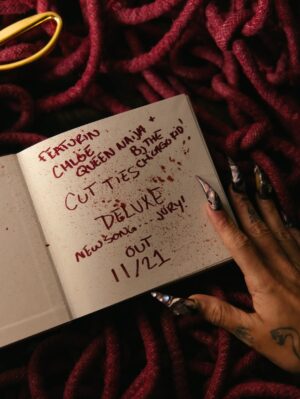 FEATURIN
CHLOE
QUEEN NAIJA +
B THE
CUT TIES
DELUXE
NEW SONG - JURY!
OUT
11/21